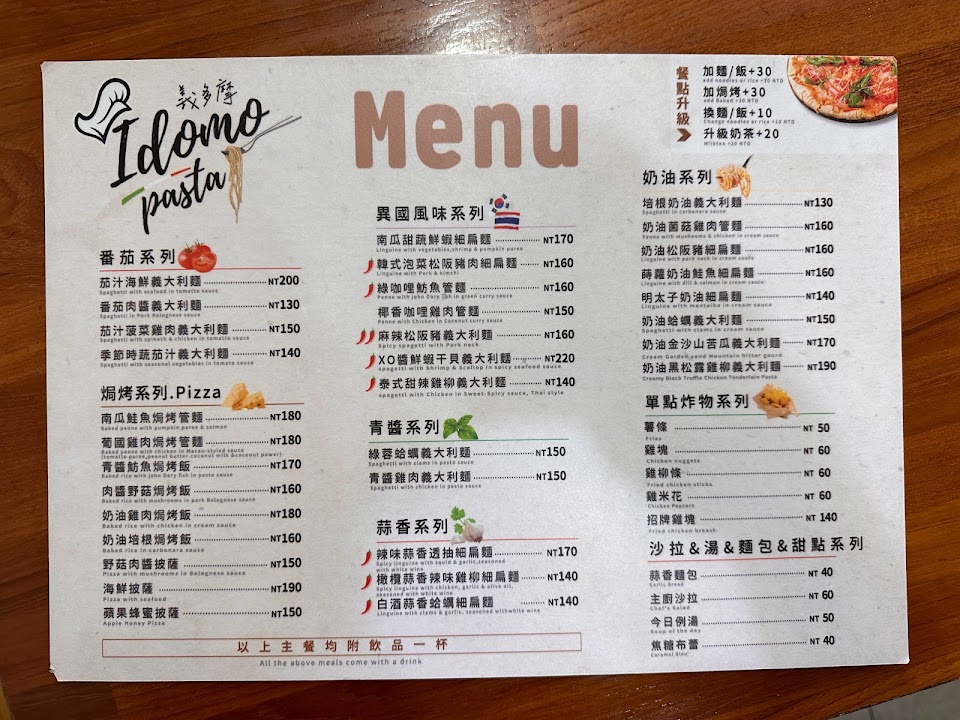 義多摩
Idomo
pasta
Menu
餐點升級
加麵/飯+30
add noodles or rice +30 NTD
加焗烤+30
add Baked +30 NTD
換麵/飯+10
Change noodles or rice +10 NTD
升級奶茶+20
Milktea +20 NTD
番茄系列
茄汁海鮮義大利麵 NT200
Spaghetti with seafood in tomato sauce
番茄肉醬義大利麵 NT130
Spaghetti in Pork Bolognese sauce
茄汁菠菜雞肉義大利麵 NT150
Spaghetti with spinach & chicken in tomato sauce
季節時蔬茄汁義大利麵 NT140
Spaghetti with seasonal vegetables in tomato sauce
焗烤系列.Pizza
南瓜鮭魚焗烤管麵 NT180
Baked penne with pumpkin puree & salmon
葡國雞肉焗烤管麵 NT180
Baked penne with chicken in Macau-styled sauce
(tomato puree,peanut butter,coconut milk &coconut power)
青醬魴魚焗烤飯 NT170
Baked rice with John Dory fish in pesto sauce
肉醬野菇焗烤飯 NT160
Baked rice with mushrooms in pork Bolognese sauce
奶油雞肉焗烤飯 NT180
Baked rice with chicken in cream sauce
奶油培根焗烤飯 NT160
Baked rice in carbonara sauce
野菇肉醬披薩 NT150
Pizza with mushrooms in Bolognese sauce
海鮮披薩 NT190
Pizza with seafood
蘋果蜂蜜披薩 NT150
Apple Honey Pizza
異國風味系列
南瓜甜蔬鮮蝦細扁麵 NT170
Linguine with vegetables,shrimp & pumpkin puree
韓式泡菜松阪豬肉細扁麵 NT160
Linguine with Pork & kimchi
綠咖哩魴魚管麵 NT160
Penne with John Dory fish in green curry sauce
椰香咖哩雞肉管麵 NT150
Penne with Chicken in Coconut curry sauce
麻辣松阪豬義大利麵 NT160
Spicy spagetti with Pork neck
XO醬鮮蝦干貝義大利麵 NT220
spagetti with Shrimp & Scallop in spicy seafood sauce
泰式甜辣雞柳義大利麵 NT140
spagetti with Chicken in Sweet-Spicy sauce, Thai style
青醬系列
綠蓉蛤蠣義大利麵 NT150
Spaghetti with clams in pesto sauce
青醬雞肉義大利麵 NT150
Spaghetti with chicken in pesto sauce
蒜香系列
辣味蒜香透抽細扁麵 NT170
Spicy linguine with squid & garlic,seasoned
with white wine
橄欖蒜香辣味雞柳細扁麵 NT140
Spicy linguine with chicken, garlic & olive oil,
seasoned with white wine
白酒蒜香蛤蠣細扁麵 NT140
Linguine with clams & garlic, seasoned withwhite wine
奶油系列
培根奶油義大利麵 NT130
Spaghetti in carbonara sauce
奶油菌菇雞肉管麵 NT160
Penne with mushrooms & chicken in cream sauce
奶油松阪豬細扁麵 NT160
Linguine with pork neck in cream sauce
蒔蘿奶油鮭魚細扁麵 NT160
Linguine with dill & salmon in cream sauce
明太子奶油細扁麵 NT140
Linguine with mentaiko in cream sauce
奶油蛤蠣義大利麵 NT150
Spaghetti with clams in cream sauce
奶油金沙山苦瓜義大利麵 NT170
Cream Golden sand Mountain bitter gourd
奶油黑松露雞柳義大利麵 NT190
Creamy Black Truffle Chicken Tenderloin Pasta
單點炸物系列
薯條 NT 50
Fries
雞塊 NT 60
Chicken nuggets
雞柳條 NT 60
Fried chicken sticks
雞米花 NT 60
Chicken Popcorn
招牌雞塊 NT 140
Fried chicken breast
沙拉&湯&麵包&甜點系列
蒜香麵包 NT 40
Garlic Bread
主廚沙拉 NT 60
Chef's Salad
今日例湯 NT 50
Soup of the day
焦糖布蕾 NT 40
Caramel Bleu'
以上主餐均附飲品一杯
All the above meals come with a drink